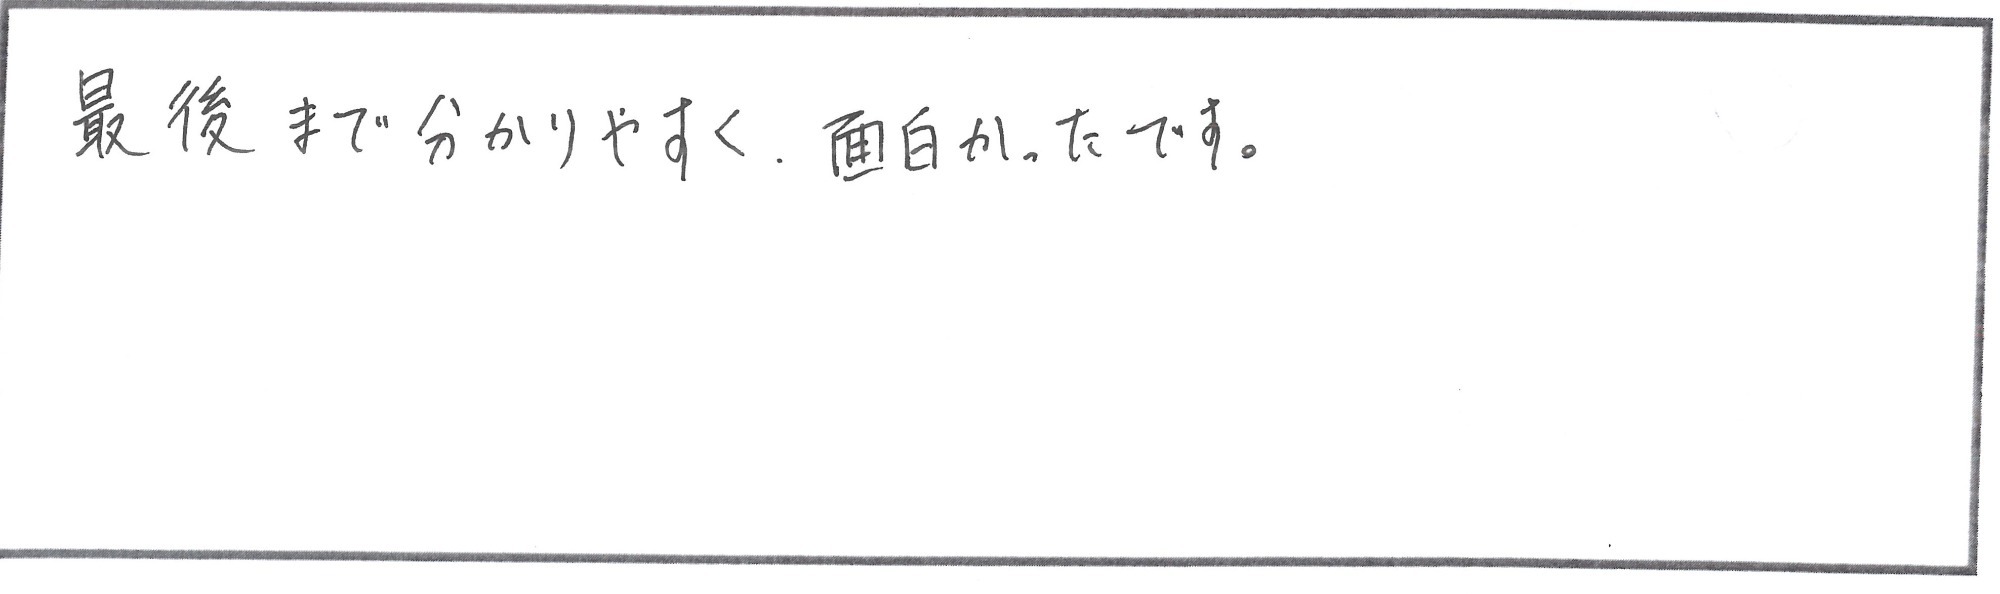 最後まで分かりやすく、面白かったです。